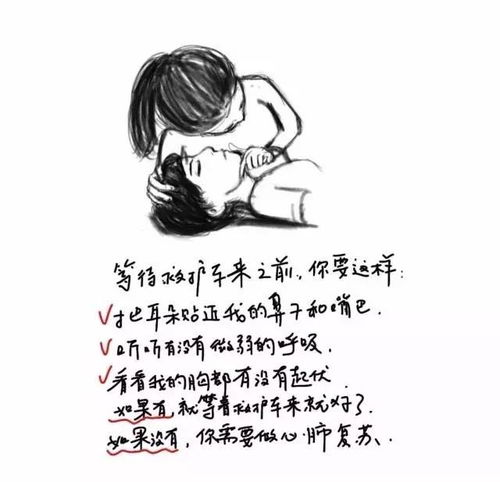 等待救护车来之前，你要这样：
把耳朵贴近我的鼻子和嘴巴．
听听有没有微弱的呼吸．
看看我的胸部有没有起伏．
如果有，就等着救护车来就好了．
如果没有，你需要做心肺复苏、．